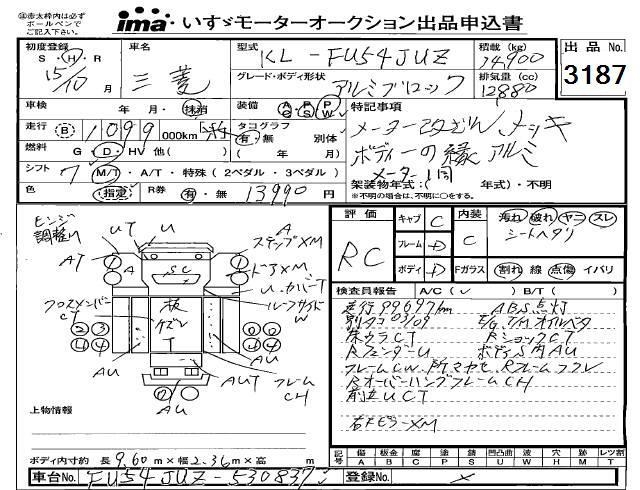 ㊟赤太枠内は必ず
ボールペンで
ご記入下さい。
ima いすゞモーターオークション出品申込書
初度登録 S・H・R 15/10 月
車名 三菱
型式 KL-FU54JUZ
積載 (kg) 14900
出品 No. 3187
グレード・ボディ形状 アルミブロック
排気量 (cc) 12880
車検 年・月・抹消
装備 AC PS PW
特記事項
走行 B 1099 000km
タコグラフ 有・無 別体
( 年 月)
メーター改ざん メッキ
燃料 G・D・HV 他( )
ボディーの縁 アルミ
シフト 7 M/T・A/T・特殊 (2ペダル・3ペダル)
色 指定 R券 有・無 13990 円
架装物年式:( 年式)・不明
※不明の場合は、不明に○をする。
ヒンジ
調整M
UT U A
ステップXM
AT A SC
ドアXM
U.カバーT
ルーフサイド
W
クロスメンバー
CT
板
T
AU AUT フレーム
CH
AU
上物情報
評価 RC
キャブ C
フレーム D
ボディ D
内装 C
Fガラス
海れ 破れ ヤニ スレ
シートヘタリ
割れ 線 点傷 イバリ
検査員報告 A/C( ✓ ) B/T( )
走行99697km ABS点灯
別タコ03/09 E/G,T/Mオイルベタ
RショックCT
RフェンダーU ボディS内AU
フレームCW
RオーバーハングフレームCH
前立UCT
右ドモラーXM
記号 傷 A 板金 B 腐 C 塗 P 錆 S 凹凸曲 U 波 W 穴 H 歪 M 跡 X レツ割 T
ボディ内寸約 長 9.60 m×幅 2.36 m×高 m
車台No. FU54JUZ-530837
登録No.